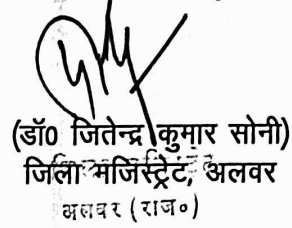 (डॉ0 जितेन्द्र कुमार सोनी)
जिला मजिस्ट्रेट, अलवर
अलवर (राज०)